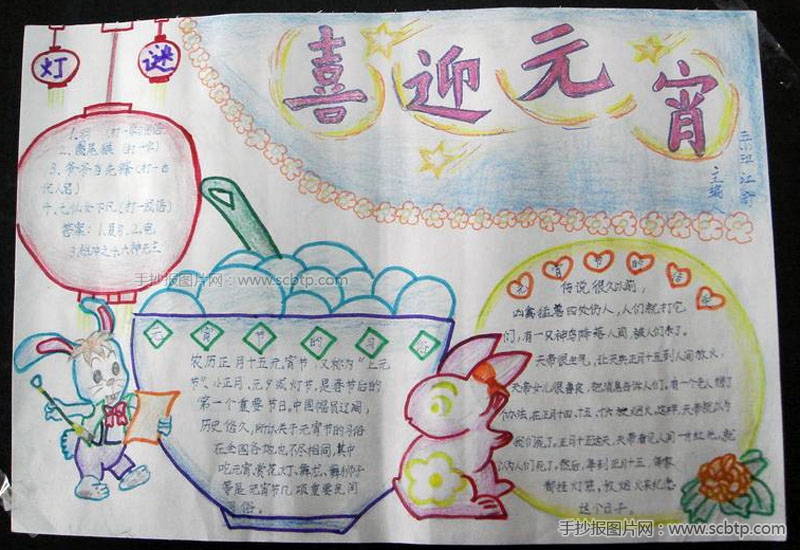 喜迎元宵
灯谜
三(1)班
主编人
1.
2.
3.爷爷当先锋(打一古
代人名)
十.七仙女下凡(打一成语)
答案:1.
3.祖冲之4.六神无主
手抄报图片网:www.scbtp.com
元宵节的风俗
农历正月十五元宵节,又称为“上元
节”,小正月、元夕或灯节,是春节后的
第一个重要节日。中国幅员辽阔,
历史悠久,所以关于元宵节的习俗
在全国各地也不尽相同,其中
吃元宵、赏花灯、舞龙、舞狮子
等是元宵节几项重要民间
习俗。
元宵节的
传说很久以前,
凶禽猛兽四处伤人,人们就打它
们,有一只神鸟降落人间,被人们杀了。
天帝很生气,让天兵正月十五到人间放火,
天帝女儿很善良,把消息告诉人们。有一个老人想了
个办法,在正月十四、十五、十六放烟火,这样,天帝就以为
我们死了。正月十五这天,天帝看见人间一片红光,就
以为人们死了,然后,每到正月十五,
都挂灯笼,放烟火来纪念
这个日子。
手抄报图片网:www.scbtp.com